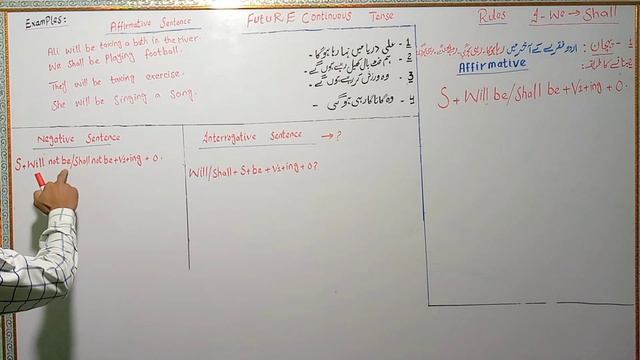 Examples:
Affirmative Sentence
FutuRE Continuous Tense
Rules I-We → Shall
Ali will be taking a bath in the river.
We shall be Playing football.
They will be taking exercise.
She will be Singing a Song.
1 - علی دریا میں نہا رہا ہو گا -
2 - ہم فٹ بال کھیل رہے ہوں گے -
3 - وہ ورزش کر رہے ہوں گے -
4 - وہ گانا گا رہی ہو گی -
1 - پہچان : اردو فقرے کے آخر میں
Affirmative
بنانے کا طریقہ :
S + Will be/Shall be + V1 + ing + O.
Negative Sentence
S + Will not be/Shall not be + V1 + ing + O.
Interrogative Sentence → ?
Will/Shall + S + be + V1 + ing + O ?